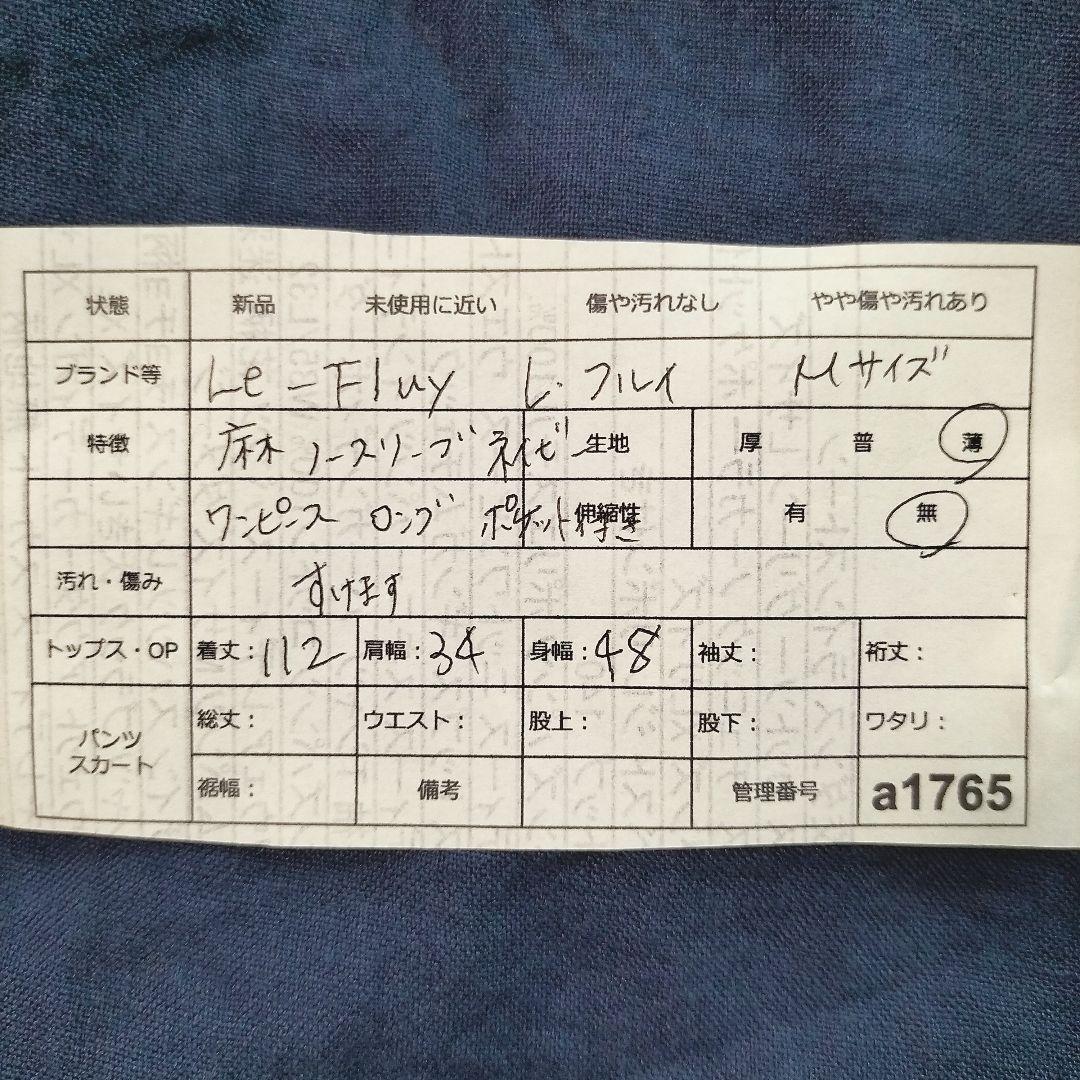 状態 新品 未使用に近い 傷や汚れなし やや傷や汚れあり
ブランド等 Le-Fluy L.フルイ Mサイズ
特徴 麻 ノースリーブ ネイビー 生地 厚 普 薄
ワンピース ロング ポケット付き 伸縮性 有 無
汚れ・傷み すけます
トップス・OP 着丈:112 肩幅:34 身幅:48 袖丈: 裄丈:
パンツ スカート 総丈: ウエスト: 股上: 股下: ワタリ:
裾幅: 備考 管理番号 a1765